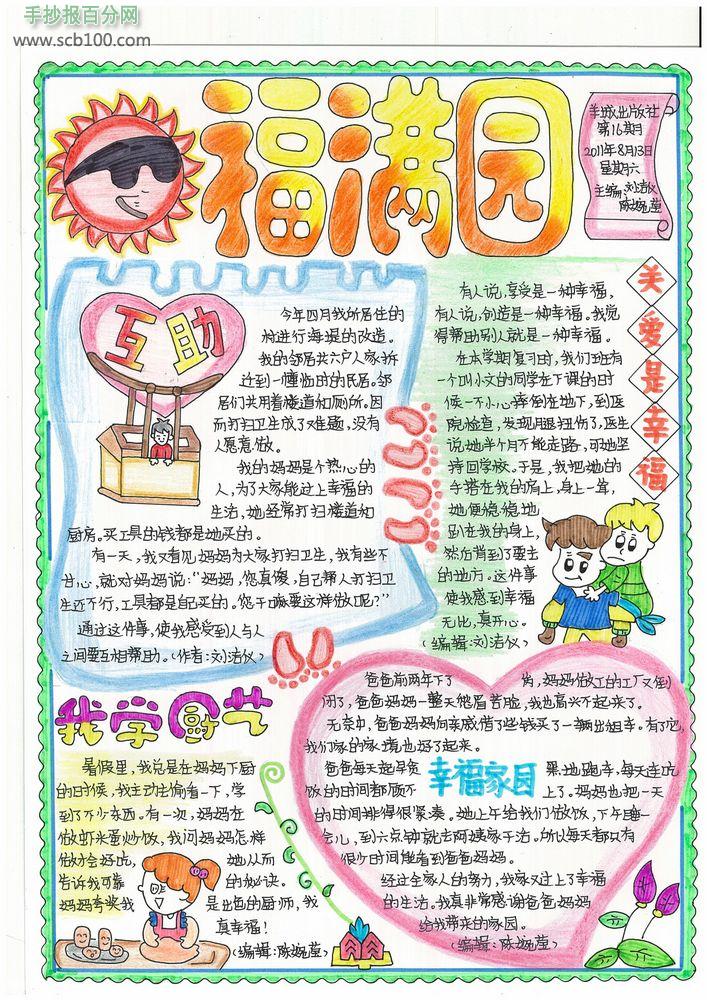 手抄报百分网
www.scb100.com
福满园
羊城出版社
第16期
2011年8月13日
星期六
主编:刘洁仪
陈婉莹
互助
今年四月我所居住的
村进行海堤的改造。
我的邻居共六户人家拆
迁到一幢临时的民居。邻
居们共用着楼道和厕所。因
而打扫卫生成了难题,没有
人愿意做。
我的妈妈是个热心的
人,为了大家能过上幸福的
生活,她经常打扫楼道和
厨房。买工具的钱都是她买的。
有一天,我又看见妈妈为大家打扫卫生,我有些不
甘心,就对妈妈说:“妈妈,您真傻,自己帮人打扫卫
生还不行,工具都是自己买的。您干嘛要这样做呢?”
通过这件事,使我感受到人与人
之间要互相帮助。(作者:刘洁仪)
关爱是幸福
有人说,享受是一种幸福,
有人说,创造是一种幸福。我觉
得帮助别人就是一种幸福。
在本学期复习时,我们班有
一个叫小文的同学在下课的时
候一不小心摔倒在地下,到医
院检查,发现月退扭伤了,医生
说她半个月不能走路,可她坚
持回学校。于是,我把她的
手搭在我的肩上,身上一耸,
她便慢慢地
趴在我的身上,
然后背到了要去
的地方。这件事
使我感到幸福
无比,真开心。
(编辑:刘洁仪)
我学厨艺
暑假里,我总是在妈妈下厨
的时候,我主动去偷看一下,学
到了不少东西。有一次,妈妈在
做虾米蛋炒饭,我问妈妈怎样
做才会好吃, 她从而
告诉我可靠 的秘诀。
妈妈夸奖我 是出色的厨师,我
真幸福!
(编辑:陈婉莹)
幸福家园
爸爸前两年下了 岗,妈妈做工的工厂又倒
闭了,爸爸妈妈一整天愁眉苦脸,我也高兴不起来了。
无奈中,爸爸妈妈向亲戚借了些钱买了一辆出租车。有了它,
我们家的家境也好了起来。
爸爸每天起早贪 黑地跑车,每天连吃
饭的时间都顾不 上了。妈妈也把一天
的时间排得很紧凑。她上午给我们做饭,下午睡一
会儿,到六点钟就去阿姨家干活。所以每天都只有
很少时间能看到爸爸妈妈。
经过全家人的努力,我家又过上了幸福
的生活。我真非常感谢爸爸妈妈
给我带来的家园。
(编辑:陈婉莹)